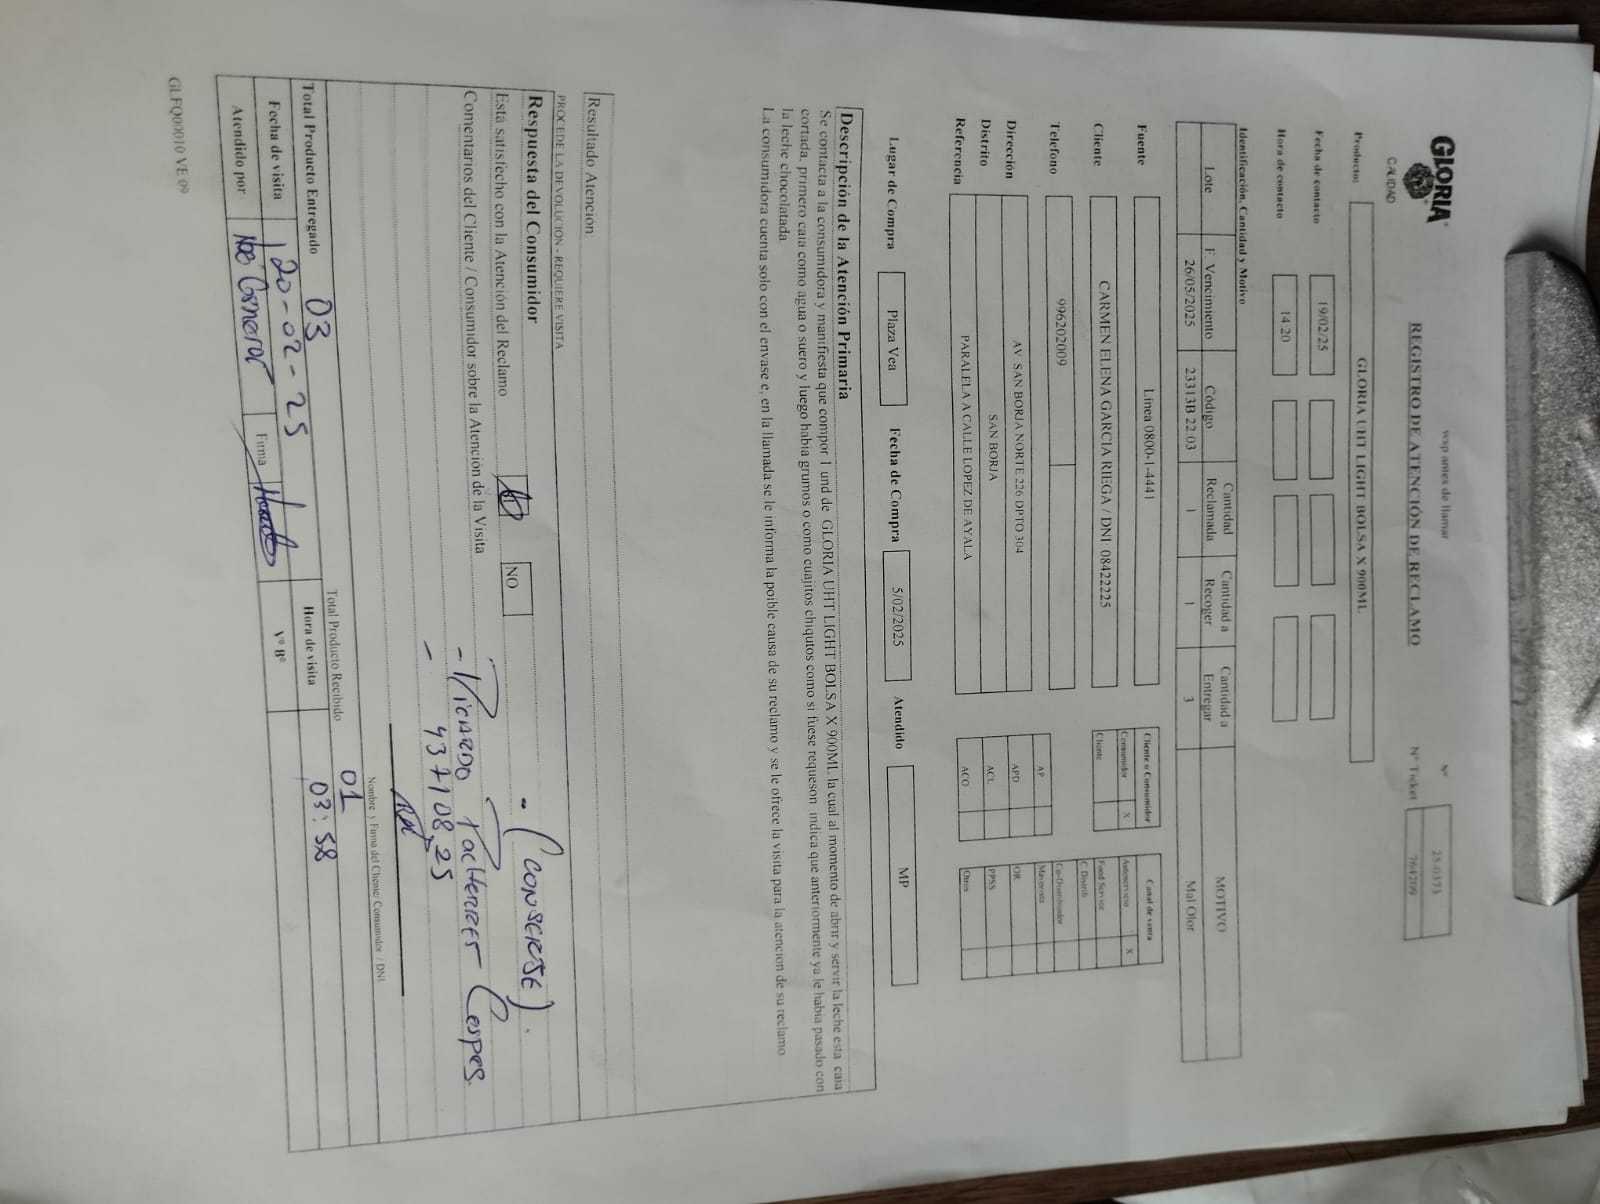 GLORIA
CALIDAD
wsp antes de llamar
REGISTRO DE ATENCIÓN DE RECLAMO
Nº 25-0373
Nº Ticket 764209
Producto: GLORIA UHT LIGHT BOLSA X 900ML
Fecha de contacto 19/02/25
Hora de contacto 14:20
Identificación, Cantidad y Motivo
Lote F. Vencimiento Código Cantidad Reclamada Cantidad a Recoger Cantidad a Entregar MOTIVO
26/05/2025 23313B 22:03 1 1 3 Mal Olor
Fuente Linea 0800-1-4441 Cliente o Consumidor Canal de venta
Consumidor X Autoservicio X
Cliente CARMEN ELENA GARCIA RIEGA / DNI 08422225 Cliente Food Service
C Distrib
Telefono 996202009 AP Co-Distribuidor
Mayorista
Dirección AV SAN BORJA NORTE 226 DPTO 304 APD OR
Distrito SAN BORJA ACL PPSS
Referencia PARALELA A CALLE LOPEZ DE AYALA ACO Otros
Lugar de Compra Plaza Vea Fecha de Compra 5/02/2025 Atendido MP
Descripción de la Atención Primaria
Se contacta a la consumidora y manifiesta que compor 1 und de GLORIA UHT LIGHT BOLSA X 900ML la cual al momento de abrir y servir la leche esta caia
cortada, primero caia como agua o suero y luego habia grumos o como cuajitos chiqutos como si fuese requeson indica que anteriormente ya le habia pasado con
la leche chocolatada
La consumidora cuenta solo con el envase e, en la llamada se le informa la poible causa de su reclamo y se le ofrece la visita para la atencion de su reclamo
Resultado Atención:
PROCEDE LA DEVOLUCION - REQUIERE VISITA
Respuesta del Consumidor
Está satisfecho con la Atención del Reclamo NO
- (CONSERJE).
Comentarios del Cliente / Consumidor sobre la Atención de la Visita
- 43710825
Nombre y Firma del Cliente/ Consumidor / DNI
Total Producto Entregado 03 Total Producto Recibido 01
Fecha de visita 20-02-25 Hora de visita 03:58
Atendido por Firma Vº Bº
GLFQ00010 VE 09